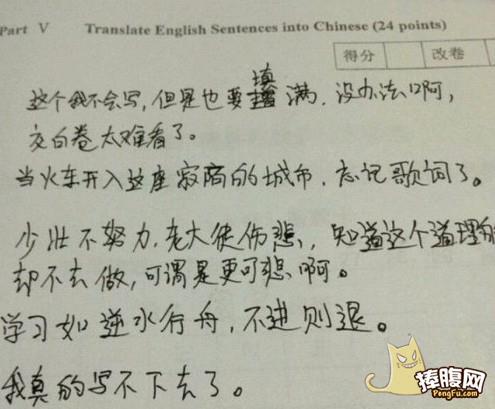 Part V Translate English Sentences into Chinese (24 points)
得分 改卷
这个我不会写，但是也要填满，没办法啊，
交白卷太难看了。
当火车开入这座寂寞的城市，忘记歌词了。
少壮不努力，老大徒伤悲，知道这个道理
却不去做，可谓是更可悲啊。
学习如逆水行舟，不进则退。
我真的写不下去了。
捧腹网
PengFu.com